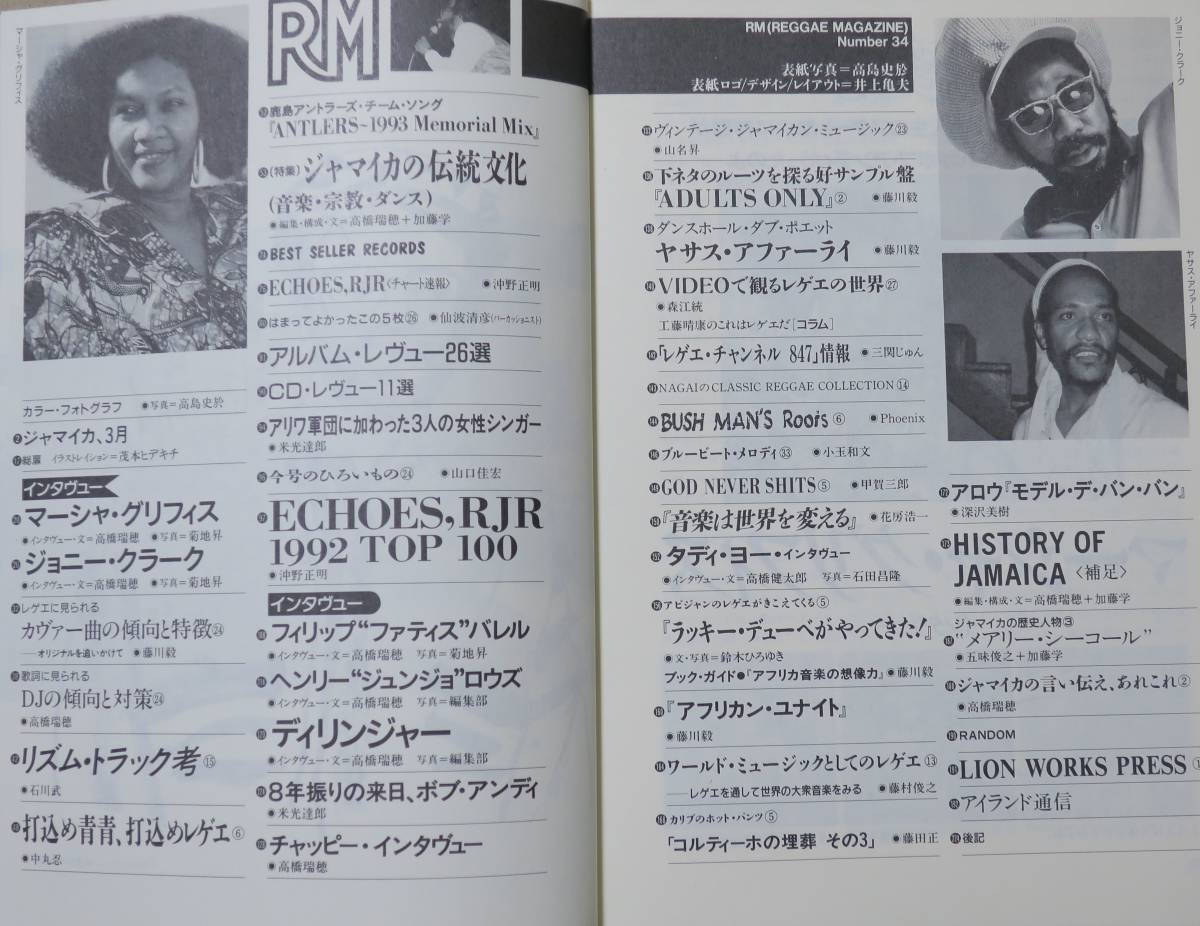 マーシャ・グリフィス
RM
カラー・フォトグラフ ●写真=高島史於
②ジャマイカ、3月
総扉 イラストレイション=茂本ヒデキチ
インタヴュー
マーシャ・グリフィス
●インタヴュー・文=高橋瑞穂 ●写真=菊地昇
ジョニー・クラーク
●インタヴュー・文=高橋瑞穂 ●写真=菊地昇
レゲエに見られる
カヴァー曲の傾向と特徴㉔
──オリジナルを追いかけて ●藤川毅
歌詞に見られる
DJの傾向と対策㉔
●高橋瑞穂
リズム・トラック考⑮
●石川武
打込め青青、打込めレゲエ⑥
●中丸忍
鹿島アントラーズ・チーム・ソング
『ANTLERS~1993 Memorial Mix』
(特集)ジャマイカの伝統文化
(音楽・宗教・ダンス)
●編集・構成・文=高橋瑞穂+加藤学
BEST SELLER RECORDS
ECHOES,RJR〈チャート速報〉 ●沖野正明
はまってよかったこの5枚㉖ ●仙波清彦(パーカッショニスト)
アルバム・レヴュー26選
CD・レヴュー11選
アリワ軍団に加わった3人の女性シンガー
●米光達郎
今号のひろいもの㉔ ●山口佳宏
ECHOES,RJR
1992 TOP 100
●沖野正明
インタヴュー
フィリップ“ファティス”バレル
●インタヴュー・文=高橋瑞穂 写真=菊地昇
ヘンリー“ジュンジョ”ロウズ
●インタヴュー・文=高橋瑞穂 写真=編集部
ディリンジャー
●インタヴュー・文=高橋瑞穂 写真=編集部
8年振りの来日、ボブ・アンディ
●米光達郎
チャッピー・インタヴュー
●高橋瑞穂
RM(REGGAE MAGAZINE)
Number 34
表紙写真=高島史於
表紙ロゴ/デザイン/レイアウト=井上亀夫
ヴィンテージ・ジャマイカン・ミュージック㉓
●山名昇
下ネタのルーツを探る好サンプル盤
『ADULTS ONLY』② ●藤川毅
ダンスホール・ダブ・ポエット
ヤサス・アファーライ ●藤川毅
VIDEOで観るレゲエの世界㉗
●森江統
工藤晴康のこれはレゲエだ[コラム]
「レゲエ・チャンネル 847」情報 ●三関じゅん
NAGAIのCLASSIC REGGAE COLLECTION⑭
BUSH MAN'S Roots⑥ ●Phoenix
ブルービート・メロディ㉝ ●小玉和文
GOD NEVER SHITS⑤ ●甲賀三郎
『音楽は世界を変える』 ●花房浩一
タディ・ヨー・インタヴュー
●インタヴュー・文=高橋健太郎 写真=石田昌隆
アビジャンのレゲエがきこえてくる⑤
『ラッキー・デューベがやってきた!』
●文・写真=鈴木ひろゆき
ブック・ガイド●『アフリカ音楽の想像力』●藤川毅
『アフリカン・ユナイト』
●藤川毅
ワールド・ミュージックとしてのレゲエ⑬
──レゲエを通して世界の大衆音楽をみる ●藤村俊之
カリブのホット・パンツ⑤
「コルティーホの埋葬 その3」 ●藤田正
ジョニー・クラーク
ヤサス・アファーライ
アロウ『モデル・デ・バン・バン』
●深沢美樹
HISTORY OF
JAMAICA〈補足〉
●編集・構成・文=高橋瑞穂+加藤学
ジャマイカの歴史人物③
“メアリー・シーコール”
●五味俊之+加藤学
ジャマイカの言い伝え、あれこれ②
●高橋瑞穂
RANDOM
LION WORKS PRESS
アイランド通信
後記